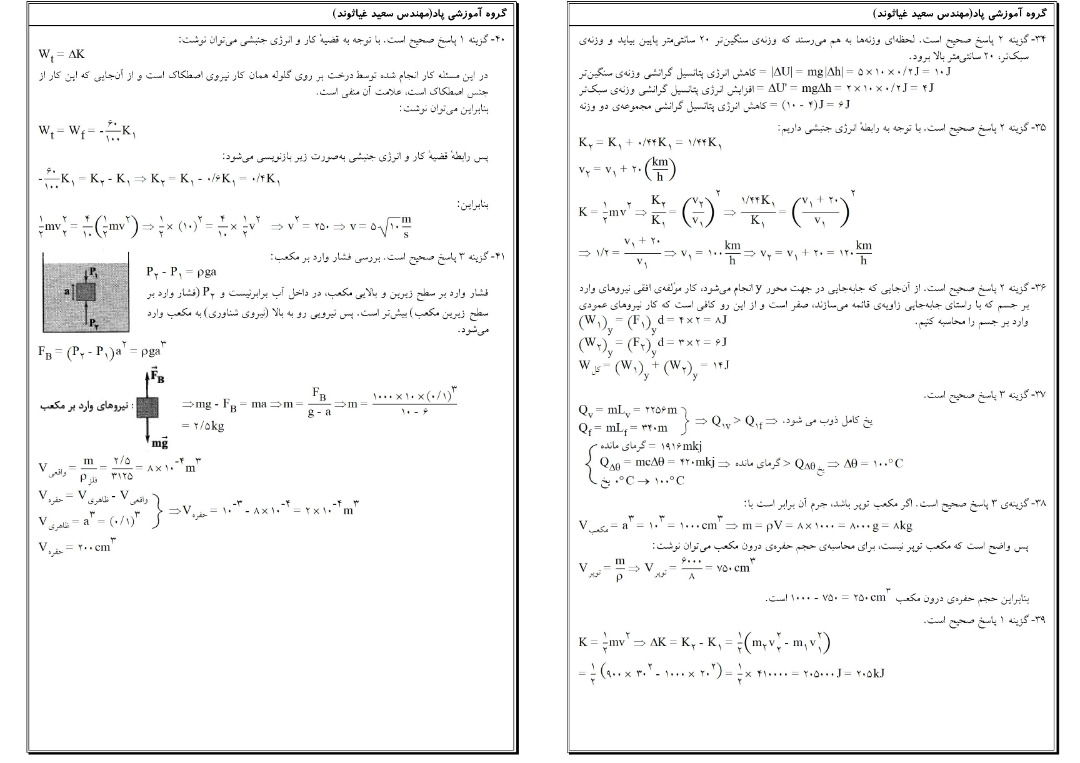 گروه آموزشی پاد(مهندس سعید غیاثوند)
۳۴- گزینه ۲ پاسخ صحیح است. لحظه‌ای وزنه‌ها به هم می‌رسند که وزنه‌ی سنگین‌تر ۲۰ سانتی‌متر پایین بیاید و وزنه‌ی
سبک‌تر، ۲۰ سانتی‌متر بالا برود.
کاهش انرژی پتانسیل گرانشی وزنه‌ی سنگین‌تر = |ΔU| = mg|Δh| = ۵ × ۱۰ × ۰/۲ J = ۱۰ J
افزایش انرژی پتانسیل گرانشی وزنه‌ی سبک‌تر = ΔU' = mgΔh = ۲ × ۱۰ × ۰/۲ J = ۴ J
کاهش انرژی پتانسیل گرانشی مجموعه‌ی دو وزنه = (۱۰ - ۴) J = ۶ J
۳۵- گزینه ۲ پاسخ صحیح است. با توجه به رابطهٔ انرژی جنبشی داریم:
K₂ = K₁ + ۰/۴۴K₁ = ۱/۴۴K₁
v₂ = v₁ + ۲۰ (km/h)
K = ½mv² ⇒ K₂/K₁ = (v₂/v₁)² ⇒ ۱/۴۴K₁/K₁ = ((v₁ + ۲۰)/v₁)²
⇒ ۱/۲ = (v₁ + ۲۰)/v₁ ⇒ v₁ = ۱۰۰ km/h ⇒ v₂ = v₁ + ۲۰ = ۱۲۰ km/h
۳۶- گزینه ۲ پاسخ صحیح است. از آن‌جایی که جابه‌جایی در جهت محور y انجام می‌شود، کار مؤلفه‌ی افقی نیروهای وارد
بر جسم که با راستای جابه‌جایی زاویه‌ی قائمه می‌سازند، صفر است و از این رو کافی است که کار نیروهای عمودی
وارد بر جسم را محاسبه کنیم.
(W₁)y = (F₁)y d = ۴ × ۲ = ۸ J
(W₂)y = (F₂)y d = ۳ × ۲ = ۶ J
W کل = (W₁)y + (W₂)y = ۱۴ J
۳۷- گزینه ۳ پاسخ صحیح است.
Qv = mLv = ۲۲۵۶m
Qf = mLf = ۳۴۰m
⇒ Q₁v > Q₁f ⇒ یخ کامل ذوب می شود.
گرمای مانده = ۱۹۱۶mkj
QΔθ = mcΔθ = ۴۲۰mkj ⇒ گرمای مانده > QΔθ یخ ⇒ Δθ = ۱۰۰°C
یخ ۰°C → ۱۰۰°C
۳۸- گزینه‌ی ۳ پاسخ صحیح است. اگر مکعب توپر باشد، جرم آن برابر است با:
V مکعب = a³ = ۱۰³ = ۱۰۰۰ cm³ ⇒ m = ρV = ۸ × ۱۰۰۰ = ۸۰۰۰ g = ۸kg
پس واضح است که مکعب توپر نیست، برای محاسبه‌ی حجم حفره‌ی درون مکعب می‌توان نوشت:
V توپر = m/ρ ⇒ V توپر = ۶۰۰۰/۸ = ۷۵۰ cm³
بنابراین حجم حفره‌ی درون مکعب ۱۰۰۰ - ۷۵۰ = ۲۵۰ cm³ است.
۳۹- گزینه ۱ پاسخ صحیح است.
K = ½mv² ⇒ ΔK = K₂ - K₁ = ½(m₂v₂² - m₁v₁²)
= ½(۹۰۰ × ۳۰² - ۱۰۰۰ × ۲۰²) = ½ × ۴۱۰۰۰۰ = ۲۰۵۰۰۰ J = ۲۰۵ kJ
گروه آموزشی پاد(مهندس سعید غیاثوند)
۴۰- گزینه ۱ پاسخ صحیح است. با توجه به قضیهٔ کار و انرژی جنبشی می‌توان نوشت:
Wt = ΔK
در این مسئله کار انجام شده توسط درخت بر روی گلوله همان کار نیروی اصطکاک است و از آن‌جایی که این کار از
جنس اصطکاک است، علامت آن منفی است.
بنابراین می‌توان نوشت:
Wt = Wf = -۶۰/۱۰۰ K₁
پس رابطهٔ قضیهٔ کار و انرژی جنبشی به‌صورت زیر بازنویسی می‌شود:
-۶۰/۱۰۰ K₁ = K₂ - K₁ ⇒ K₂ = K₁ - ۰/۶K₁ = ۰/۴K₁
بنابراین:
½mv₂² = ۴/۱۰(½mv²) ⇒ ½ × (۱۰)² = ۴/۱۰ × ½v² ⇒ v² = ۲۵۰ ⇒ v = ۵√۱۰ m/s
۴۱- گزینه ۳ پاسخ صحیح است. بررسی فشار وارد بر مکعب:
P₂ - P₁ = ρga
فشار وارد بر سطح زیرین و بالایی مکعب، در داخل آب برابرنیست و P₂ (فشار وارد بر
سطح زیرین مکعب) بیش‌تر است. پس نیرویی رو به بالا (نیروی شناوری) به مکعب وارد
می‌شود.
P₁
a
P₂
FB = (P₂ - P₁)a² = ρga³
FB
نیروهای وارد بر مکعب :
mg
⇒ mg - FB = ma ⇒ m = FB/(g - a) ⇒ m = ۱۰۰۰ × ۱۰ × (۰/۱)³/(۱۰ - ۶)
= ۲/۵kg
V واقعی = m/ρ فلز = ۲/۵/۳۱۲۵ = ۸ × ۱۰⁻⁴ m³
V حفره = V ظاهری - V واقعی
V ظاهری = a³ = (۰/۱)³
⇒ V حفره = ۱۰⁻³ - ۸ × ۱۰⁻⁴ = ۲ × ۱۰⁻⁴ m³
V حفره = ۲۰۰ cm³